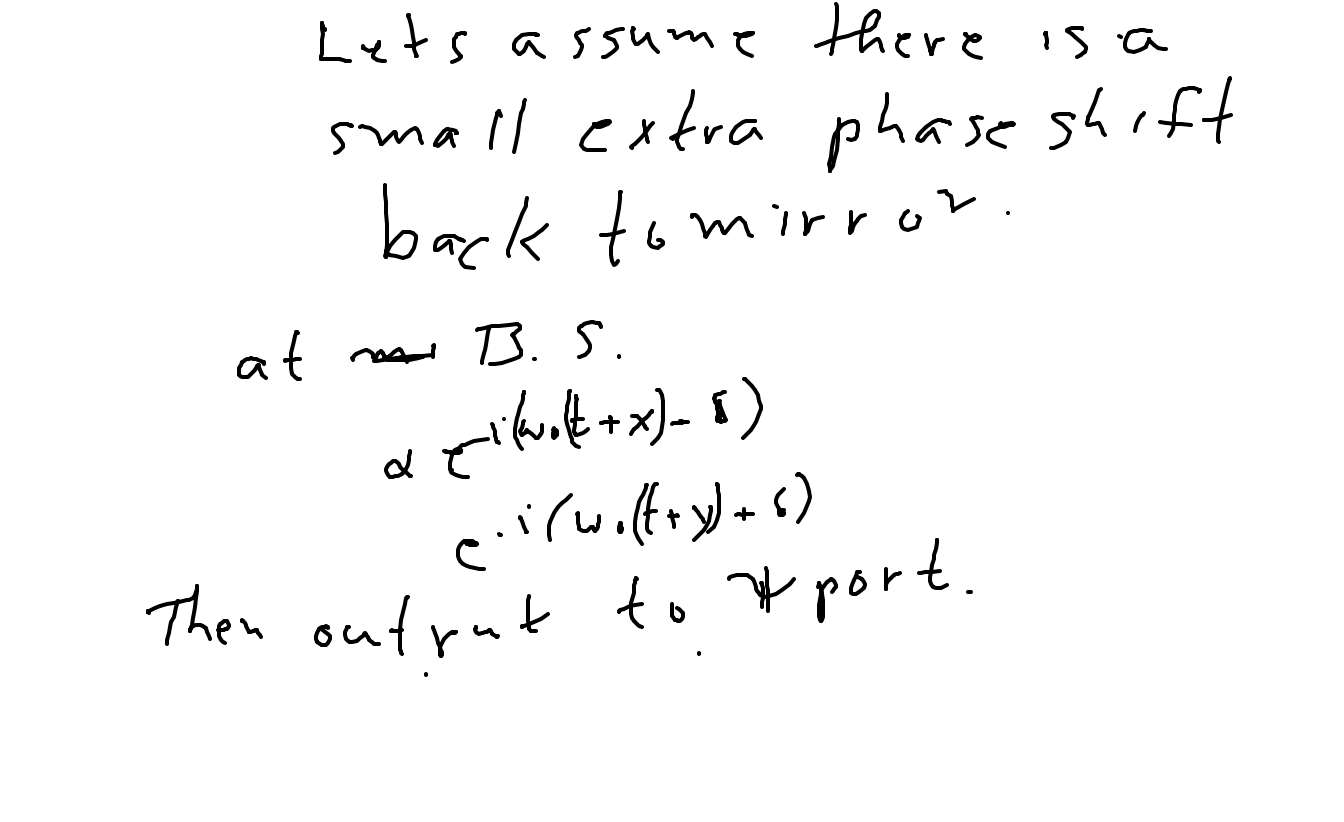 Lets assume there is a
small extra phase shift
back to mirror.
at B. S.
α e^{i(ω₀(t+x)-δ)}
e^{-i(ω₀(t+y)+δ)}
Then output to ψ port.